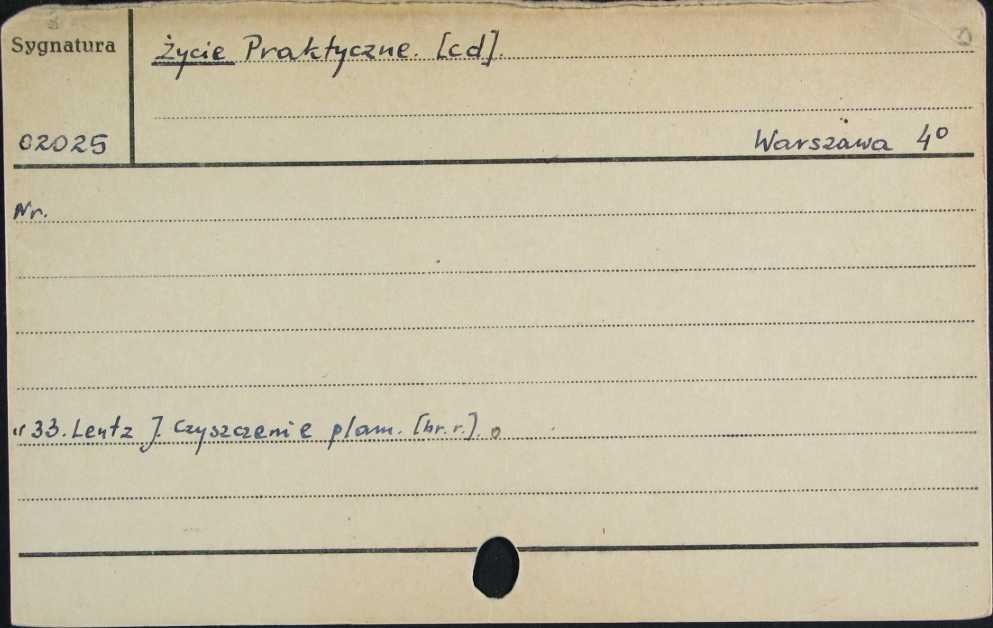 Sygnatura
Życie Praktyczne. [cd].
02025
Warszawa 4°
Nr.
" 33. Lentz J. Czyszczenie plam. [br. r.]. o